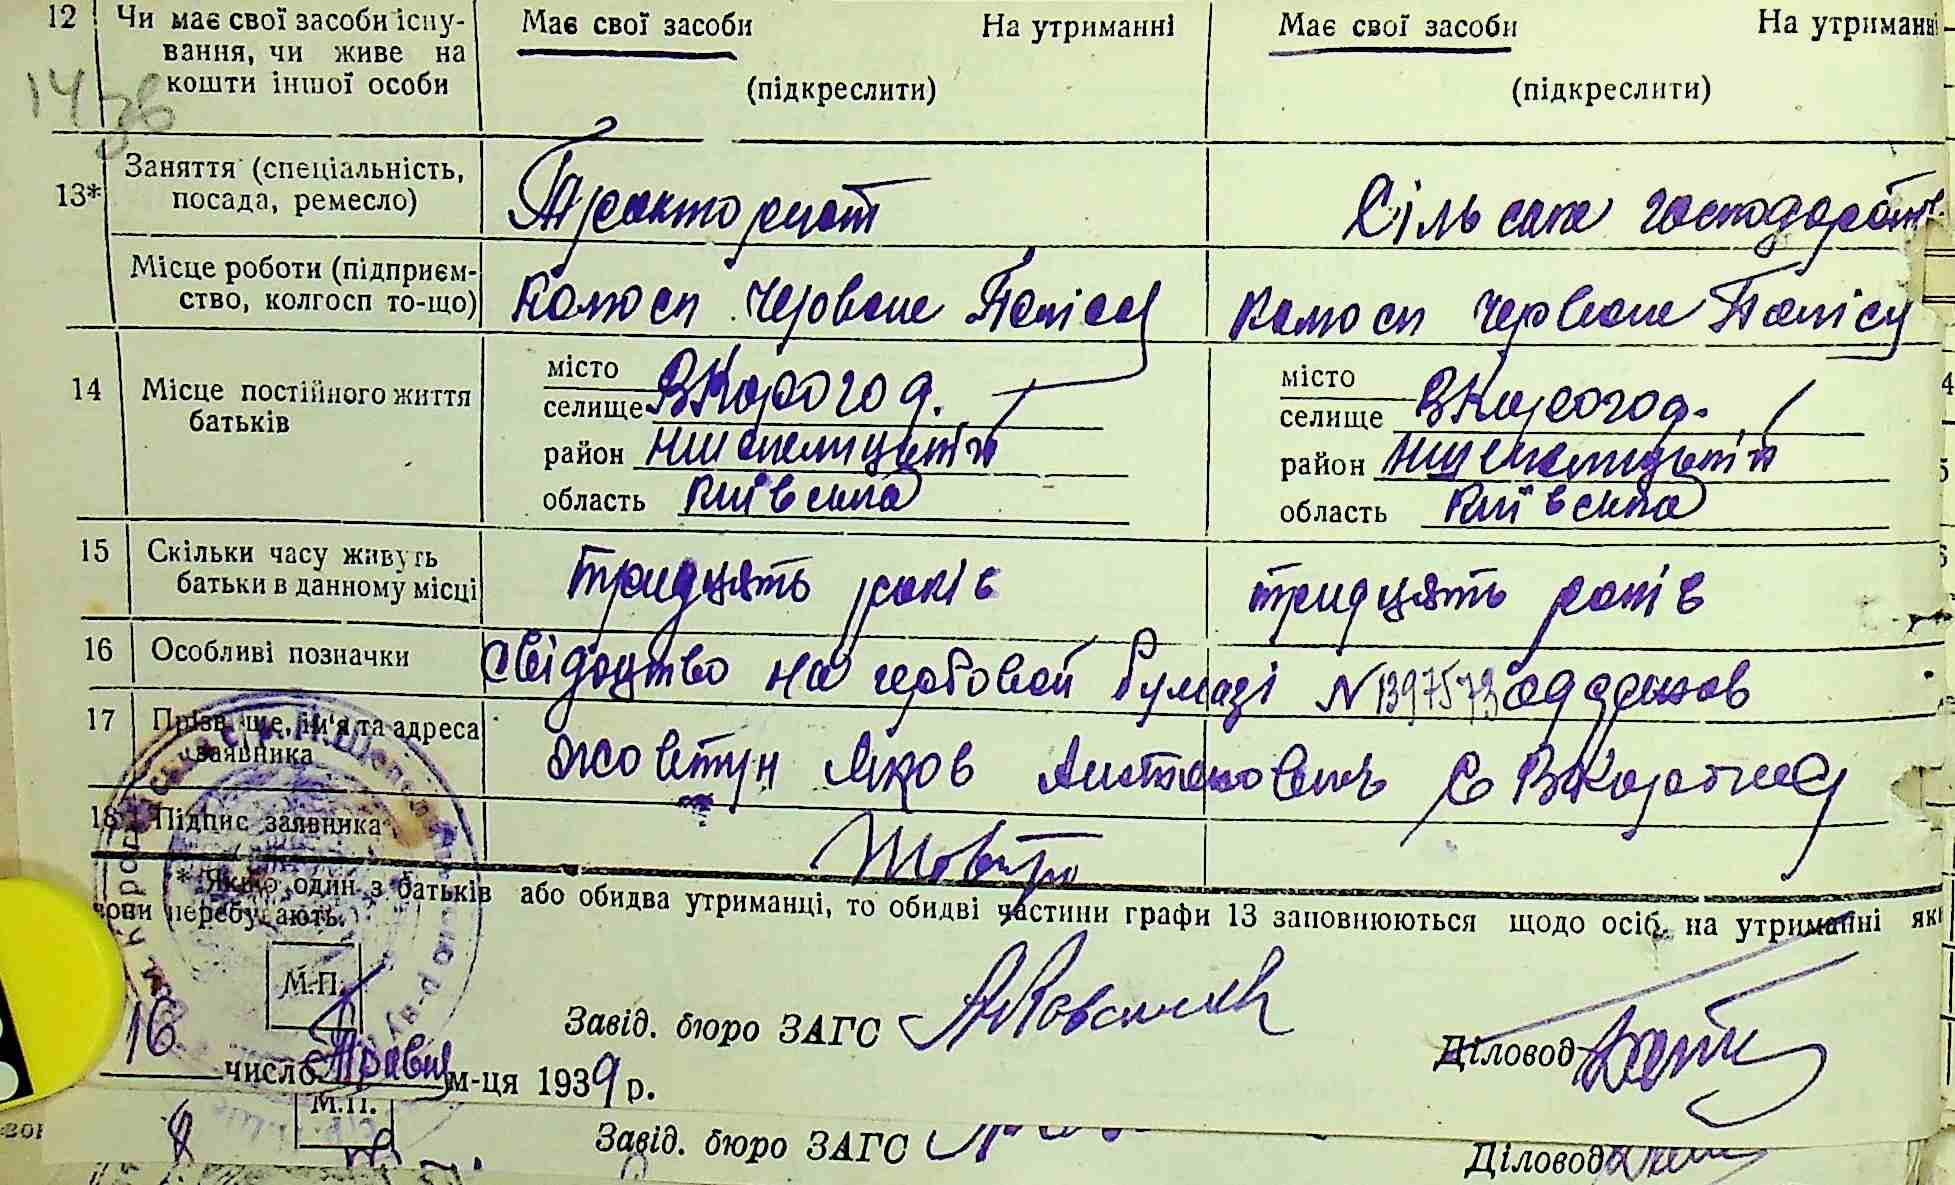 12 Чи має свої засоби існу- Має свої засоби На утриманні Має свої засоби На утриманні
вання, чи живе на
кошти іншої особи (підкреслити) (підкреслити)
13* Заняття (спеціальність, Тракторист Сільське господарств
посада, ремесло)
Місце роботи (підприєм- Колгосп Червоне Полісся Колгосп Червоне Полісся
ство, колгосп то-що)
14 Місце постійного життя місто місто
батьків селище В Корогод. селище В Корогод.
район область Київська район область Київська
15 Скільки часу живуть тридцять років тридцять років
батьки в данному місці
16 Особливі позначки Свідоцтво на гербовой бумазі N 1397573
17 Прізвище, ім'я та адреса Жовтун Яков с В Корогод
заявника
18 Підпис заявника
* Якщо один з батьків або обидва утриманці, то обидві частини графи 13 заповнюються щодо осіб, на утриманні яки
вони перебувають.
М.П.
Завід. бюро ЗАГС Діловод
16 число Травня м-ця 1939 р.
М.П.
Завід. бюро ЗАГС Діловод